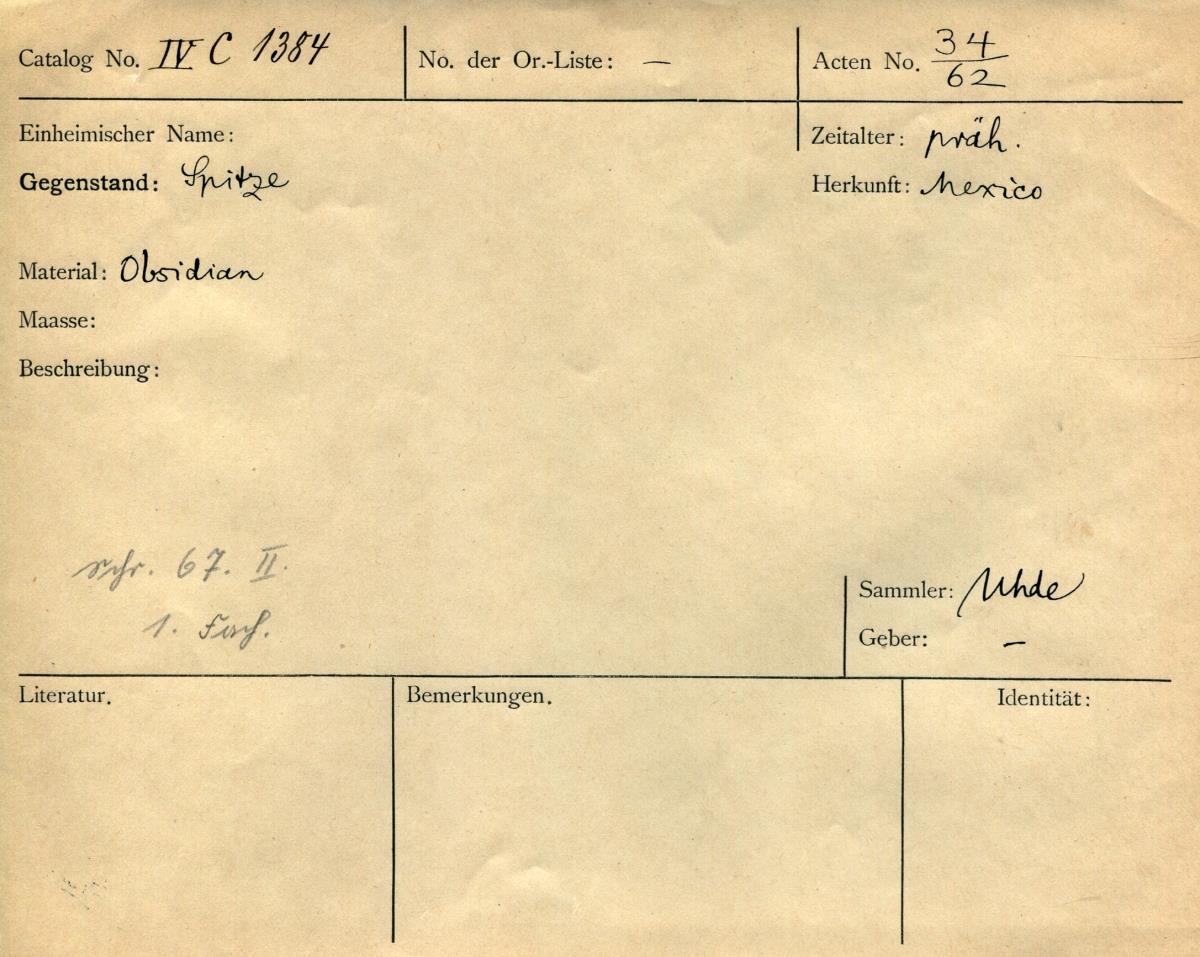 Catalog No. IV C 1384
No. der Or.-Liste: —
Acten No. 34/62
Einheimischer Name:
Zeitalter: präh.
Gegenstand: Spitze
Herkunft: Mexico
Material: Obsidian
Maasse:
Beschreibung:
Schr. 67. II.
1. Fach.
Sammler: Uhde
Geber: —
Literatur.
Bemerkungen.
Identität: